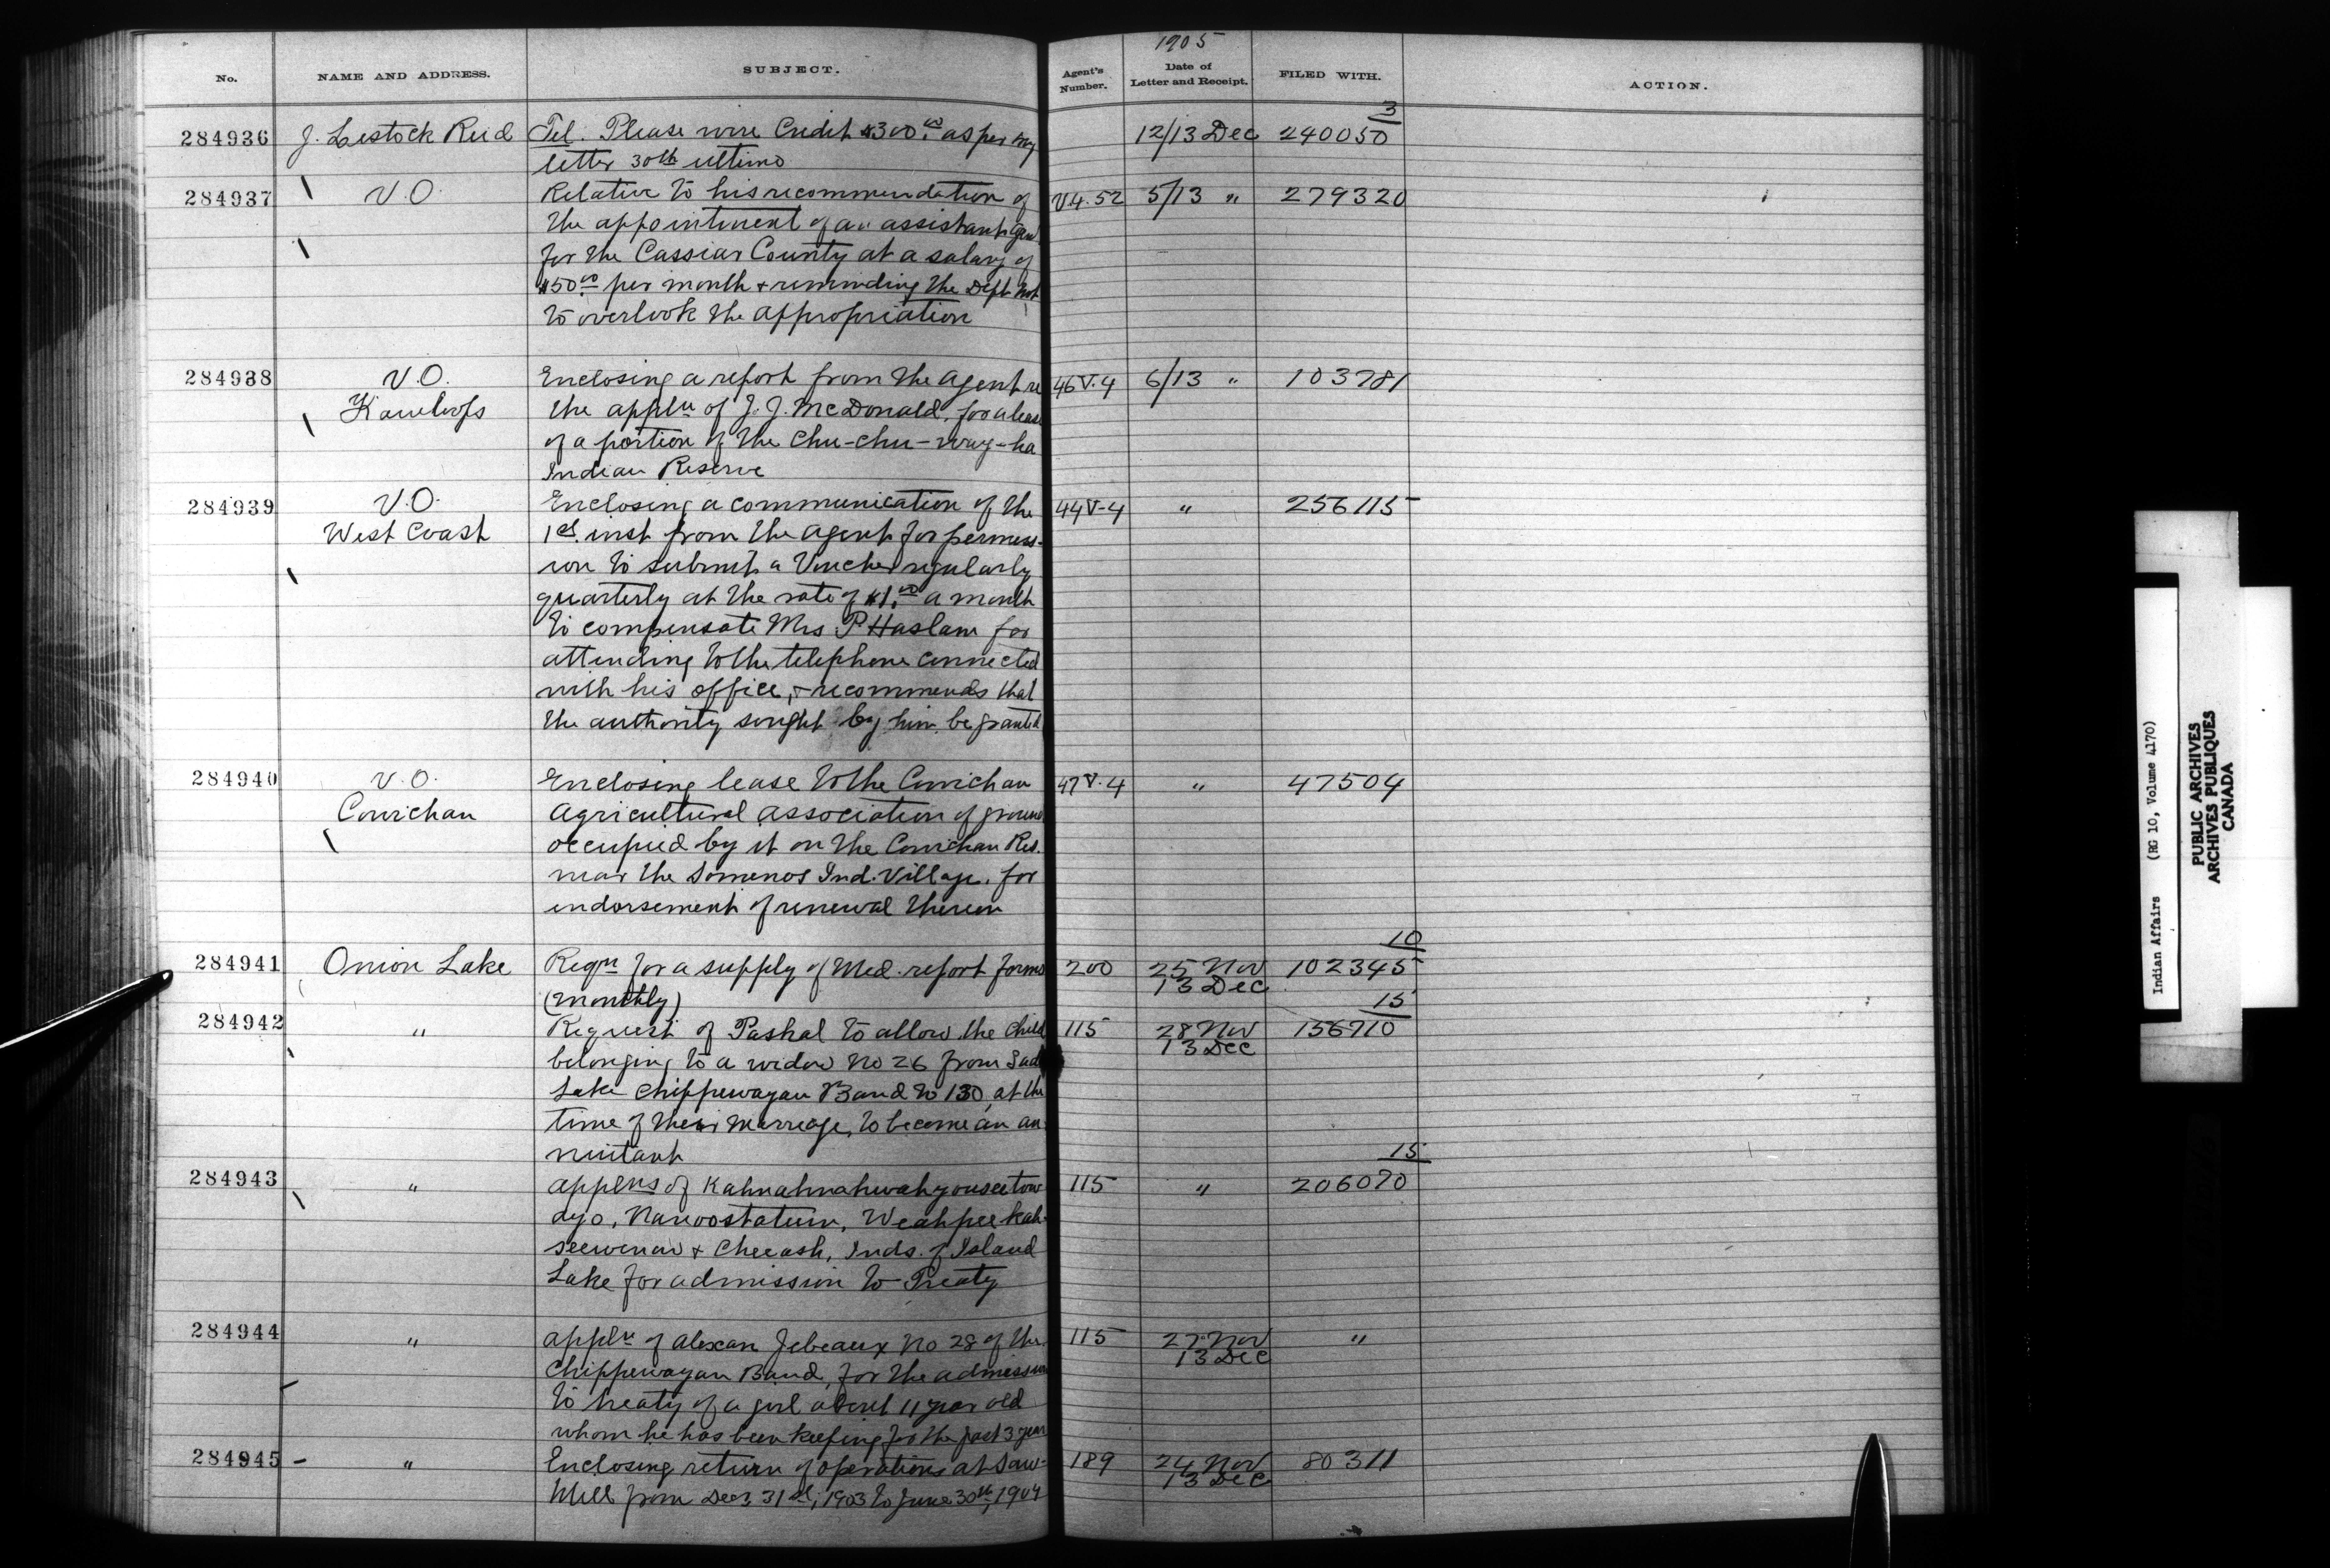 1905
No. NAME AND ADDRESS. SUBJECT. Agent's Number. Date of Letter and Receipt. FILED WITH. ACTION.
3
284936 J. Lestock Reid Tel. Please wire Credit $300.00 as per my 12/13 Dec 240050
letter 30th ultimo
284937 V.O. Relative to his recommendation of V.4.52 5/13 " 279320
the appointment of an assistant Gen
for the Cassiar County at a salary of
$50.00 per month & reminding the Dept not
to overlook the appropriation
284938 V.O. Enclosing a report from the agent re 46 V.4 6/13 " 103781
Kamloops the appln of J. J. McDonald, for a lease
of a portion of the Chu-chu-way-ha
Indian Reserve
284939 V.O. Enclosing a communication of the 44 V-4 " 256115
West Coast 1st. inst from the agent for permiss-
ion to submit a Voucher regularly
quarterly at the rate of $1.00 a month
to compensate Mrs P Haslam for
attending to the telephone connected
with his office, & recommends that
the authority sought by him be granted
284940 V.O. Enclosing lease to the Cowichan 47 V.4 " 47504
Cowichan Agricultural Association of ground
occupied by it on the Cowichan Res.
near the Somenos Ind. Village. for
endorsement of renewal thereon
10
284941 Onion Lake Reqn for a supply of Med. report forms 200 25 Nov 102345
(monthly) 13 Dec
15
284942 " Request of Paskal to allow the child 115 28 Nov 156710
belonging to a widow No 26 from Sad 13 Dec
Lake Chippewayan Band to 130, at the
time of their Marriage, to become an an
nuitant
15
284943 " applns of Kahnahnahwahyouseetow 115 " 206070
ayo, Nanoostatum, Weahpeekah-
seewenaw & Cheeash, Inds. of Island
Lake for admission to Treaty
284944 " appln of Alexan Jebeaux No 28 of the 115 27 Nov "
Chippewayan Band, for the admission 13 Dec
to treaty of a girl about 11 year old
whom he has been keeping for the past 3 year
284945 " Enclosing return of operations at Saw- 189 24 Nov 80311
Mill from Decr 31st, 1903 to June 30th, 1904 13 Dec
Indian Affairs (RG 10, Volume 4170)
PUBLIC ARCHIVES
ARCHIVES PUBLIQUES
CANADA